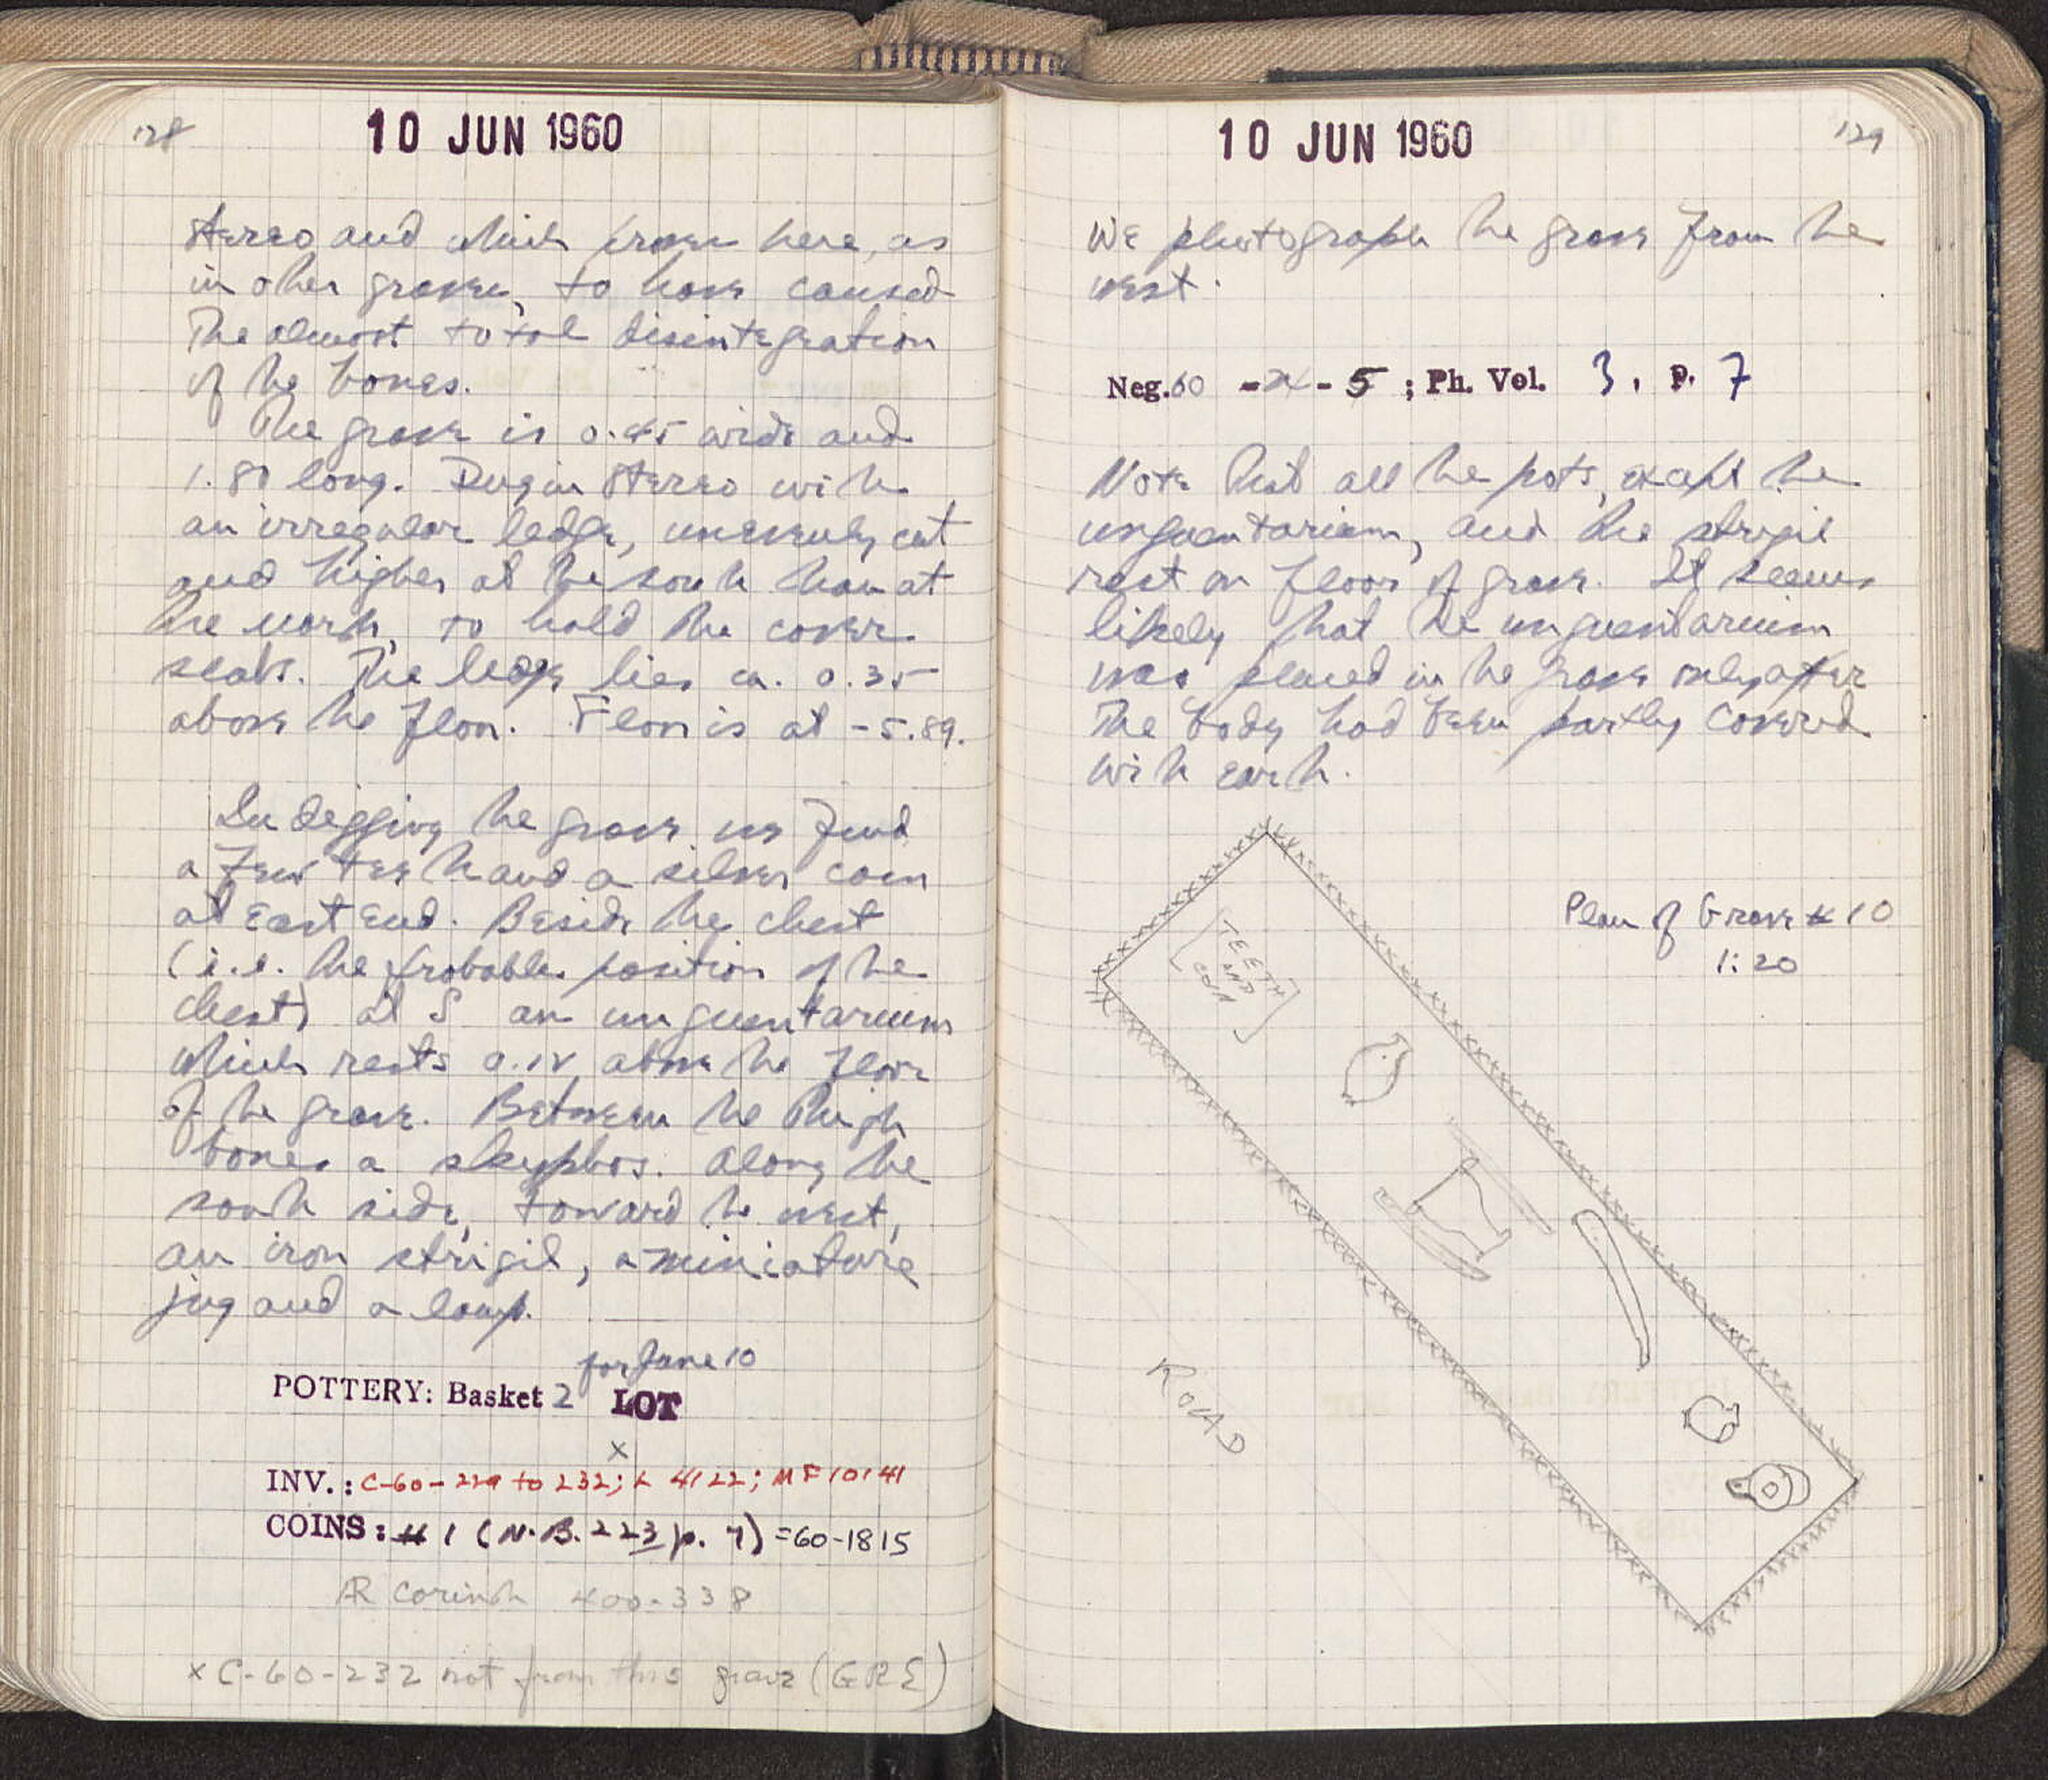 128
10 JUN 1960
stereo and which proves here, as
in other graves, to have caused
the almost total disintegration
of the bones.
The grave is 0.45 wide and
1.80 long. Dug in stereo with
an irregular ledge, unevenly cut
and higher at the south than at
the north, to hold the cover
slabs. The ledge lies ca. 0.35
above the floor. Floor is at -5.89.
In digging the grave we find
a few teeth and a silver coin
at East end. Beside the chest
(i.e. the probable position of the
chest) at S an unguentarium
which rests 0.12 above the floor
of the grave. Between the thigh
bones a skyphos. Along the
south side, toward the west,
an iron strigil, a miniature
jug and a lamp.
for June 10
POTTERY: Basket 2 LOT
x
INV.: C-60-229 to 232; L 4122; MF 10141
COINS: # 1 (N.B. 223 p. 7) = 60-1815
AR Corinth 400-338
x C-60-232 not from this grave (GRE)
129
10 JUN 1960
We photograph the grave from the
west.
Neg. 60 - - 5 ; Ph. Vol. 3, P. 7
Note that all the pots, except the
unguentarium, and the strigil
rest on floor of grave. It seems
likely that the unguentarium
was placed in the grave only after
the body had been partly covered
with earth.
Plan of Grave # 10
1:20
[TEETH
AND
COIN]
ROAD